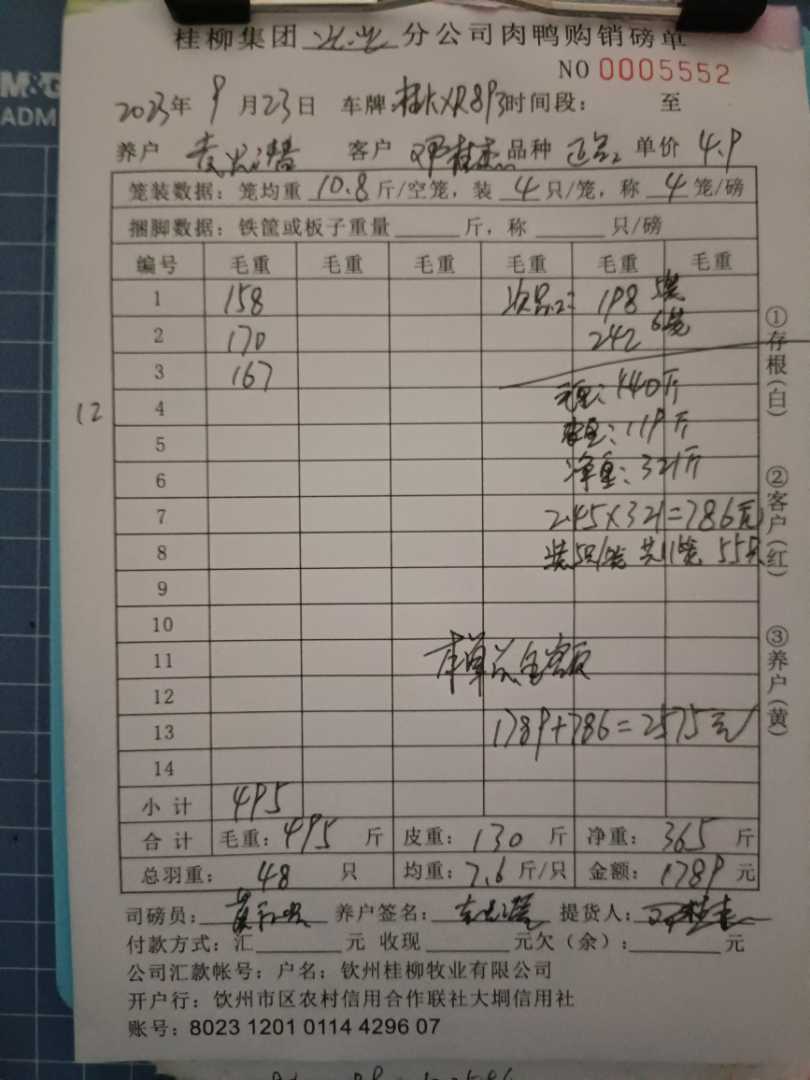 M&G
ADM
桂柳集团 分公司肉鸭购销磅单
NO 0005552
2023年 9月23日 车牌: 桂AXR893 时间段: 至
养户 客户 邓桂杰 品种 正品 单价 4.9
笼装数据: 笼均重 10.8 斤/空笼, 装 4 只/笼, 称 4 笼/磅
捆脚数据: 铁筐或板子重量 斤, 称 只/磅
编号 毛重 毛重 毛重 毛重 毛重 毛重
1 158 次品: 198 5笼
2 170 242 6笼
3 167
毛重: 440斤
12 4
皮重: 119斤
5
净重: 321斤
6
7 2.45×321=786元
8 装5只/笼 共11笼 55只
9
10
11 本单总金额
12
13 1789+786=2575元
14
小计 495
合计 毛重: 495 斤 皮重: 130 斤 净重: 365 斤
总羽重: 48 只 均重: 7.6 斤/只 金额: 1789 元
司磅员: 养户签名: 提货人: 邓桂杰
付款方式: 汇 元 收现 元欠(余): 元
公司汇款帐号: 户名: 钦州桂柳牧业有限公司
开户行: 钦州市区农村信用合作联社大垌信用社
账号: 8023 1201 0114 4296 07
①存根(白)
②客户(红)
③养户(黄)